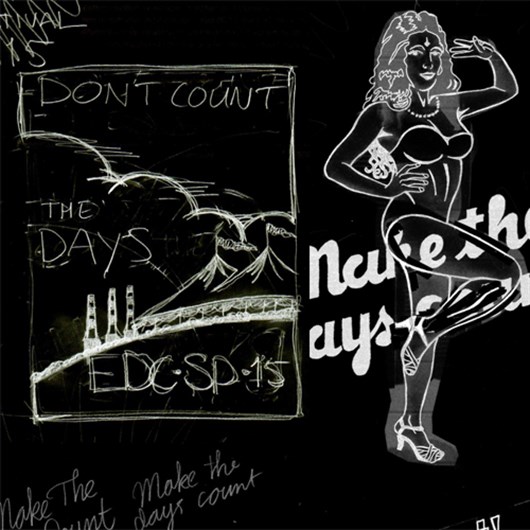 DON'T COUNT
THE
DAYS
EDC·SP·15
Make the
ays
Make The
ount
Make the
days count